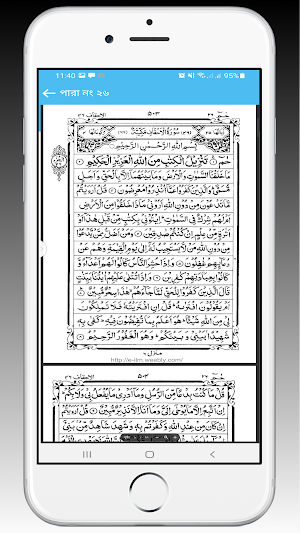 11:40 95%
← পারা নং ২৬
الاحقاف ٤٦ ٥٠٣ حٰمٓ ٢٦
بِسْمِ اللّٰهِ الرَّحْمٰنِ الرَّحِيْمِ
حٰمٓ ۚ تَنْزِيْلُ الْكِتٰبِ مِنَ اللّٰهِ الْعَزِيْزِ الْحَكِيْمِ
مَا خَلَقْنَا السَّمٰوٰتِ وَالْاَرْضَ وَمَا بَيْنَهُمَاۤ اِلَّا بِالْحَقِّ وَاَجَلٍ
مُّسَمًّى ؕ وَالَّذِيْنَ كَفَرُوْا عَمَّاۤ اُنْذِرُوْا مُعْرِضُوْنَ قُلْ اَرَءَيْتُمْ
مَّا تَدْعُوْنَ مِنْ دُوْنِ اللّٰهِ اَرُوْنِيْ مَاذَا خَلَقُوْا مِنَ الْاَرْضِ
اَمْ لَهُمْ شِرْكٌ فِي السَّمٰوٰتِ ؕ اِيْتُوْنِيْ بِكِتٰبٍ مِّنْ قَبْلِ هٰذَاۤ اَوْ
اَثٰرَةٍ مِّنْ عِلْمٍ اِنْ كُنْتُمْ صٰدِقِيْنَ وَمَنْ اَضَلُّ مِمَّنْ يَّدْعُوْا
مِنْ دُوْنِ اللّٰهِ مَنْ لَّا يَسْتَجِيْبُ لَهٗۤ اِلٰى يَوْمِ الْقِيٰمَةِ وَهُمْ عَنْ
دُعَآئِهِمْ غٰفِلُوْنَ وَاِذَا حُشِرَ النَّاسُ كَانُوْا لَهُمْ اَعْدَآءً وَّ
كَانُوْا بِعِبَادَتِهِمْ كٰفِرِيْنَ وَاِذَا تُتْلٰى عَلَيْهِمْ اٰيٰتُنَا بَيِّنٰتٍ
قَالَ الَّذِيْنَ كَفَرُوْا لِلْحَقِّ لَمَّا جَآءَهُمْ هٰذَا سِحْرٌ مُّبِيْنٌ اَمْ
يَقُوْلُوْنَ افْتَرٰىهُ ؕ قُلْ اِنِ افْتَرَيْتُهٗ فَلَا تَمْلِكُوْنَ
لِيْ مِنَ اللّٰهِ شَيْئًا ؕ هُوَ اَعْلَمُ بِمَا تُفِيْضُوْنَ فِيْهِ ؕ كَفٰى بِهٖ
شَهِيْدًۢا بَيْنِيْ وَبَيْنَكُمْ ؕ وَهُوَ الْغَفُوْرُ الرَّحِيْمُ
منزل ٦
http://e-ilm.weebly.com/
الاحقاف ٤٦ ٥٠٣ حٰمٓ ٢٦
قُلْ مَا كُنْتُ بِدْعًا مِّنَ الرُّسُلِ وَمَاۤ اَدْرِيْ مَا يُفْعَلُ بِيْ وَلَا بِكُمْ ؕ
اِنْ اَتَّبِعُ اِلَّا مَا يُوْحٰۤى اِلَيَّ وَمَاۤ اَنَا اِلَّا نَذِيْرٌ مُّبِيْنٌ قُلْ اَرَءَيْتُمْ
اِنْ كَانَ مِنْ عِنْدِ اللّٰهِ وَكَفَرْتُمْ بِهٖ وَشَهِدَ شَاهِدٌ مِّنْۢ بَنِيْۤ